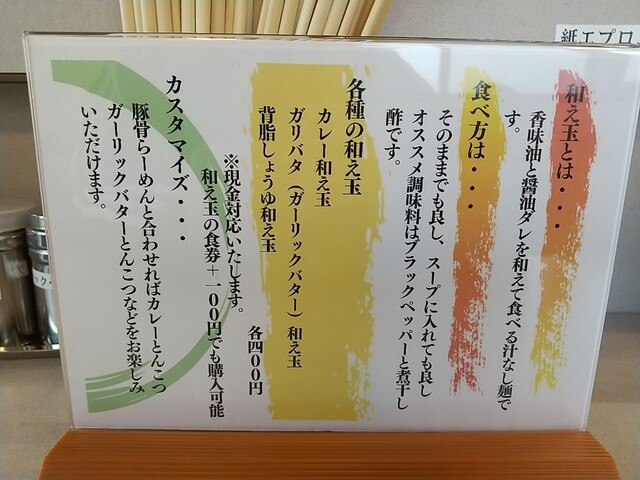 紙エプロン
和え玉とは・・・
香味油と醤油ダレを和えて食べる汁なし麺で
す。
食べ方は・・・
そのままでも良し、スープに入れても良し
オススメ調味料はブラックペッパーと煮干し
酢です。
各種の和え玉
カレー和え玉
ガリバタ（ガーリックバター）和え玉
背脂しょうゆ和え玉
各四00円
※現金対応いたします。
和え玉の食券＋一00円でも購入可能
カスタマイズ・・・
豚骨らーめんと合わせればカレーとんこつ
ガーリックバターとんこつなどをお楽しみ
いただけます。